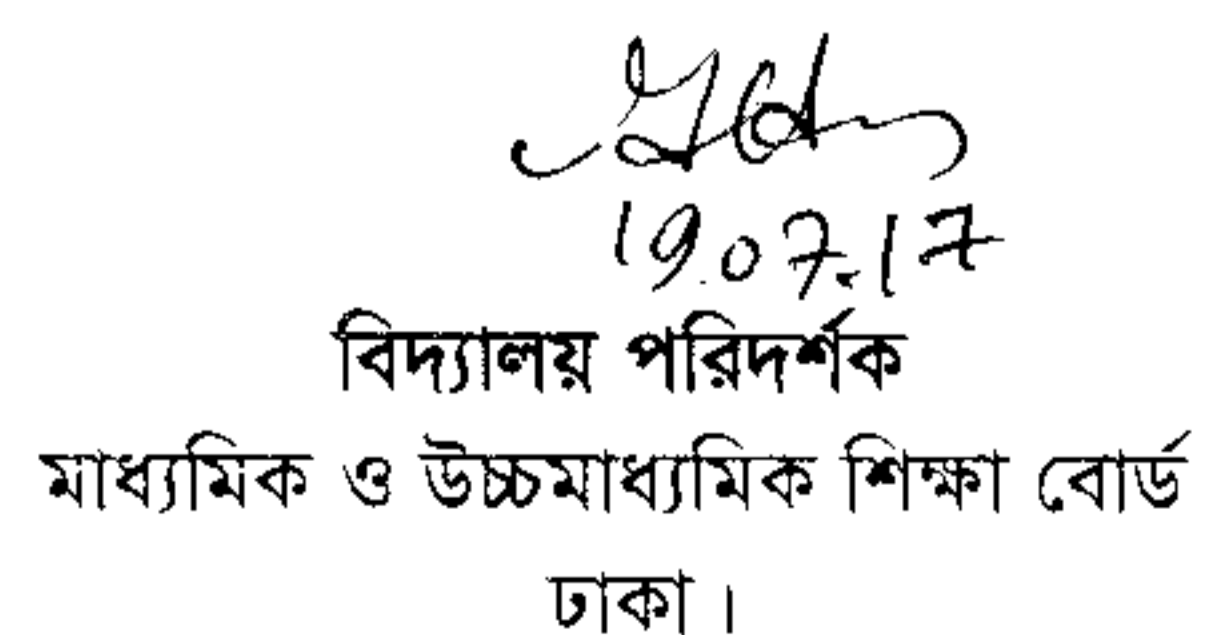 19.07.17
বিদ্যালয় পরিদর্শক
মাধ্যমিক ও উচ্চমাধ্যমিক শিক্ষা বোর্ড
ঢাকা।